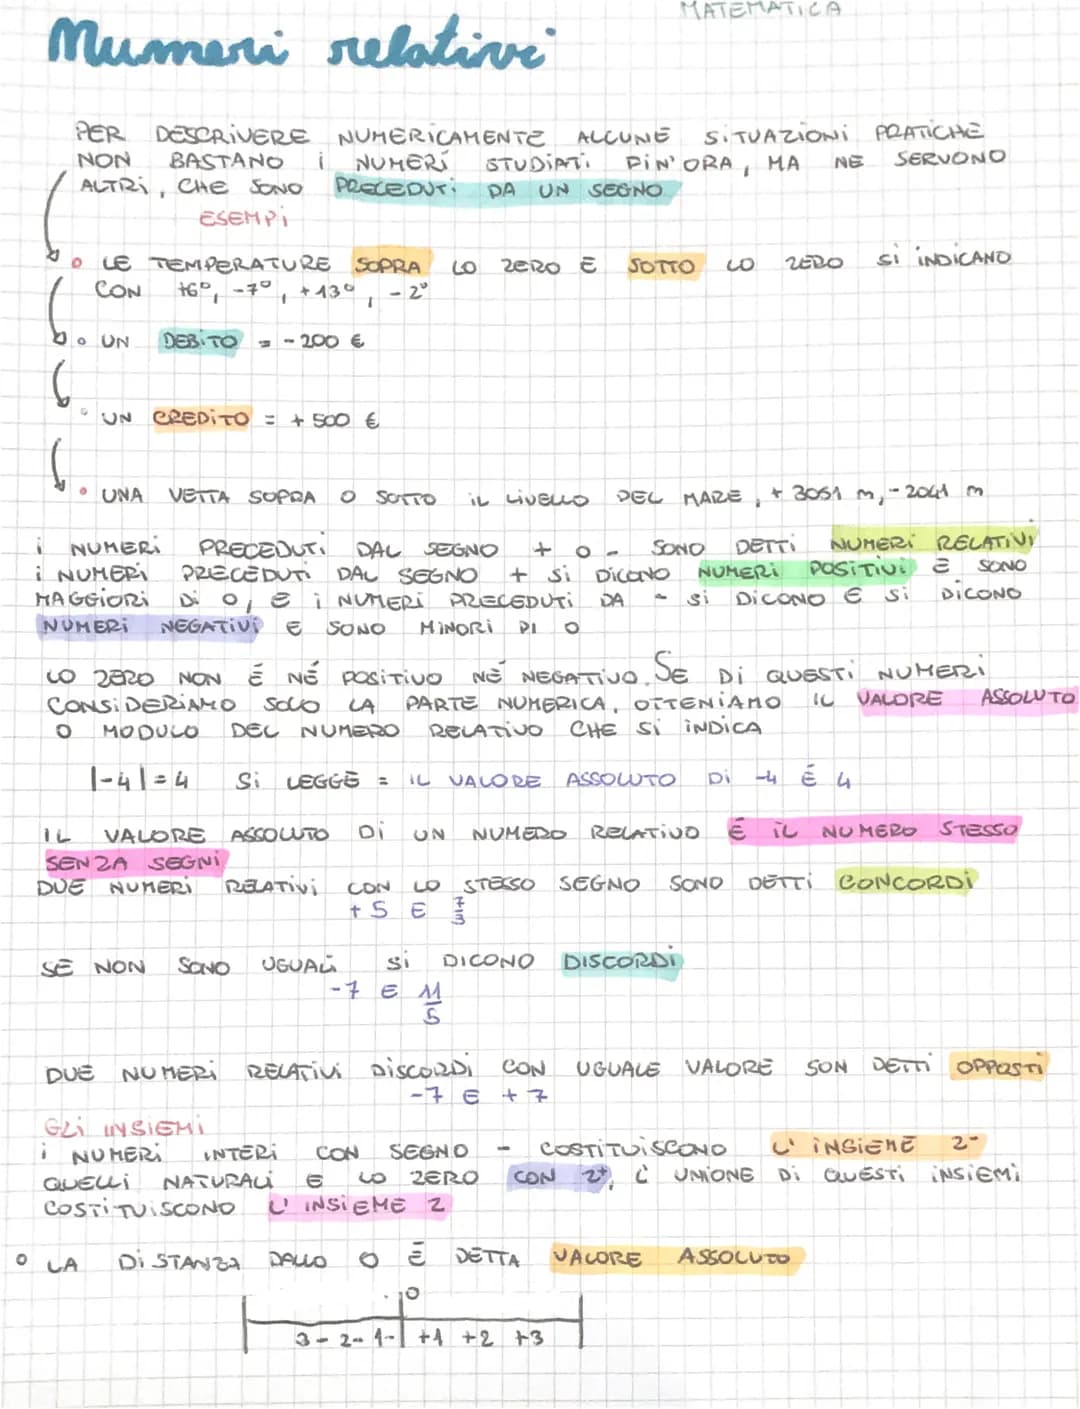 MATEMATICA
Numeri relativi
PER DESCRIVERE NUMERICAMENTE ALCUNE SITUAZIONI PRATICHE
NON BASTANO i NUMERI STUDIATI FIN'ORA, MA NE SERVONO
ALTRI, CHE SONO PRECEDUTI DA UN SEGNO
ESEMPI
LE TEMPERATURE SOPRA LO ZERO E SOTTO LO ZERO SI INDICANO
CON +6°, -7°, +13°, -2°
UN DEBITO = -200 €
UN CREDITO = + 500 €
UNA VETTA SOPRA O SOTTO IL LIVELLO DEL MARE, + 3051 m, -2041 m
i NUMERI PRECEDUTI DAL SEGNO + O - SONO DETTI NUMERI RELATIVI
i NUMERI PRECEDUTI DAL SEGNO + SI DICONO NUMERI POSITIVI E SONO
MAGGIORI DI 0, E i NUMERI PRECEDUTI DA - SI DICONO E SI DICONO
NUMERI NEGATIVI E SONO MINORI DI 0
LO ZERO NON É NÉ POSITIVO NÉ NEGATIVO. SE DI QUESTI NUMERI
CONSIDERIAMO SOLO LA PARTE NUMERICA, OTTENIAMO IL VALORE ASSOLUTO
O MODULO DEL NUMERO RELATIVO CHE SI INDICA
|-4|=4 SI LEGGE = IL VALORE ASSOLUTO DI -4 É 4
IL VALORE ASSOLUTO DI UN NUMERO RELATIVO É IL NUMERO STESSO
SENZA SEGNI
DUE NUMERI RELATIVI CON LO STESSO SEGNO SONO DETTI CONCORDI
+ 5 E 7/3
SE NON SONO UGUALI SI DICONO DISCORDI
-7 E 11/5
DUE NUMERI RELATIVI DISCORDI CON UGUALE VALORE SON DETTI OPPOSTI
-7 E +7
GLI INSIEMI
i NUMERI INTERI CON SEGNO - COSTITUISCONO L'INSIEME Z-
QUELLI NATURALI E LO ZERO CON Z+, L'UNIONE DI QUESTI INSIEMI
COSTITUISCONO L'INSIEME Z
LA DISTANZA DALLO 0 É DETTA VALORE ASSOLUTO
0
3- 2- 1- +1 +2 +3